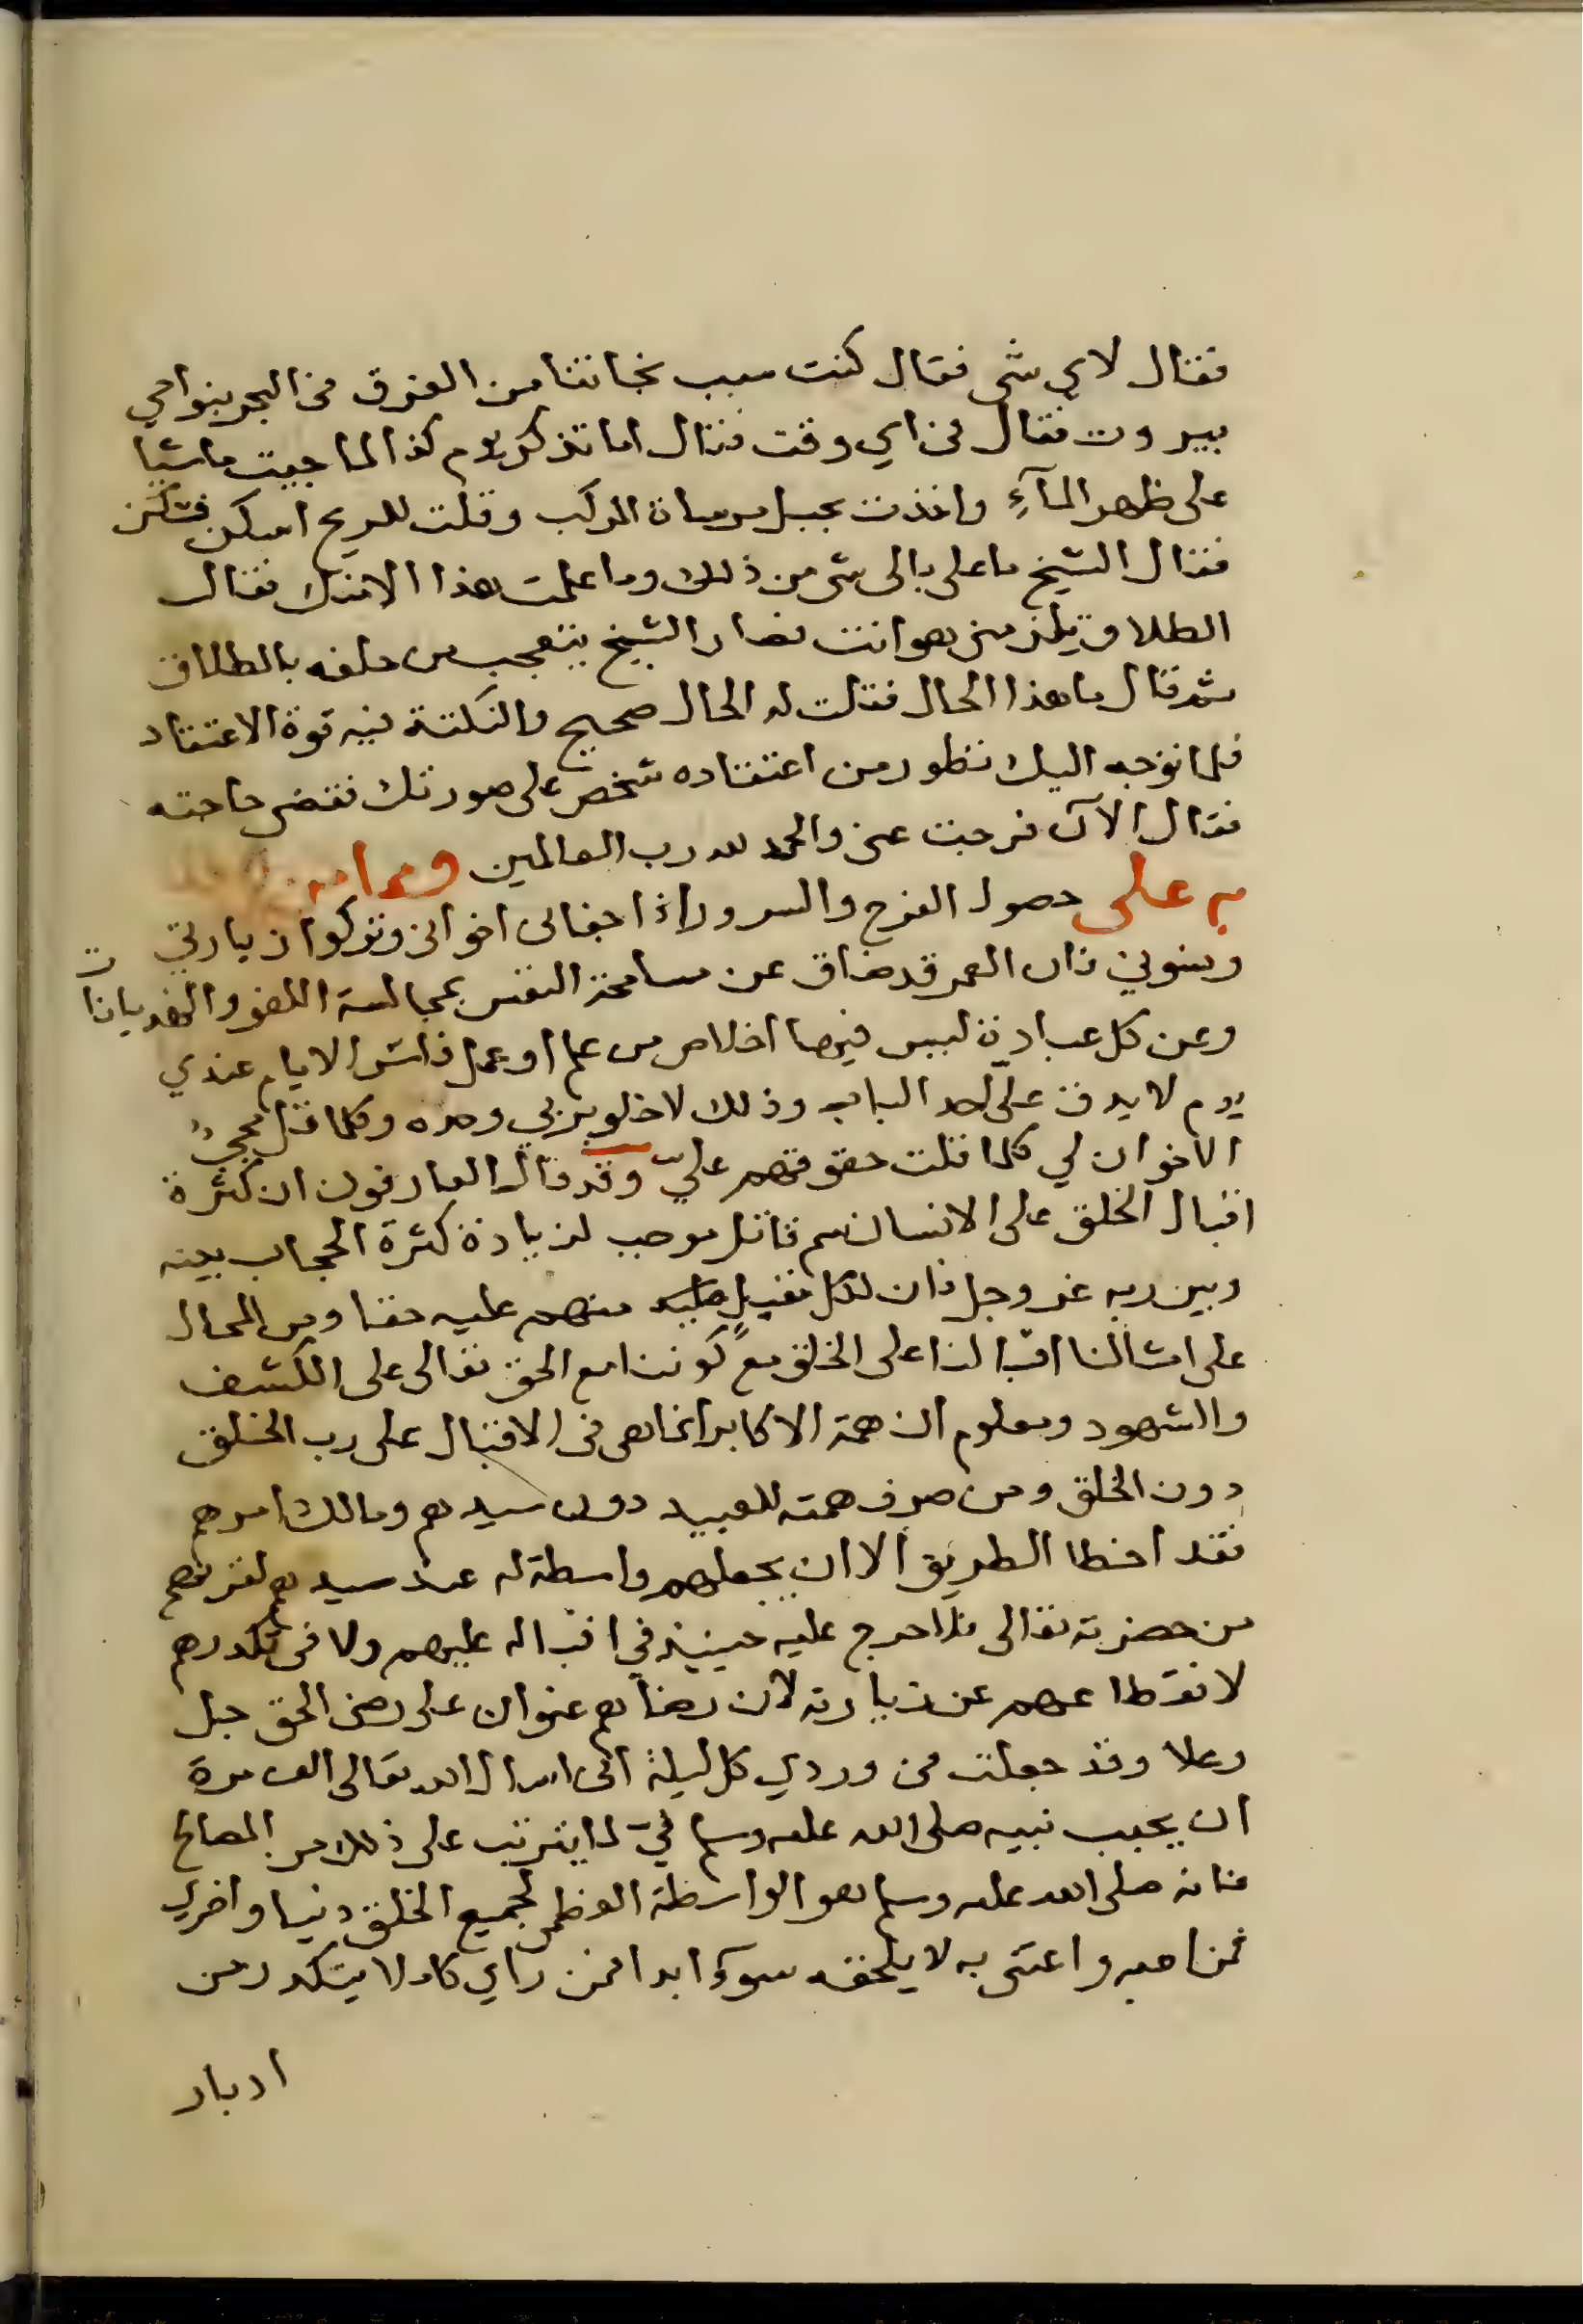 فقال لاي شي فقال كنت سبب نجاتنا من الغرق في البحر بنواحي
بيروت فقال في اي وقت فقال اما تذكر يوم كذا لما جيت ماشيا
على ظهر المآءِ واخذت بحبل مرساة المركب وقلت للريح اسكن فسكن
فقال الشيخ ما على بالى شى من ذلك وما علمت هذا الامنك فقال
الطلاق يلزمني هو انت فصار الشيخ يتعجب من حلفه بالطلاق
ثم قال ما هذا الحال فقلت له الحال صحيح والنكتة فيه قوة الاعتقاد
فلما توجه اليك تطور من اعتقاده شخص على صورتك فقضى حاجته
فقال الآن فرجت عني والحمد لله رب العالمين ومما من
به على حصول الفرح والسرور اذا جفانى اخوانى وتركوا زيارتي
ونسوني فان العمر قد ضاق عن مسامحة النفس بمجالسة اللغو والهذيانات
وعن كل عبادة ليس فيها اخلاص من علم او عمل فاسر الايام عندي
يوم لا يدق علىّ احد الباب وذلك لاخلو بربي وحده وكلما قل مجيُ
الاخوان لي كلما قلت حقوقهم عليّ وقد قال العارفون ان كثرة
اقبال الخلق على الانسان سم قاتل موجب لزيادة كثرة الحجاب بينه
وبين ربه عز وجل فان لكل مقبلٍ منهم عليه حقا ومن المحال
على امثالنا اقبالنا على الخلق مع كوننا مع الحق تعالى على الكشف
والشهود ومعلوم ان همة الاكابر انما هى فى الاقبال على رب الخلق
دون الخلق ومن صرف همته للعبيد دون سيدهم ومالك امرهم
فقد اخطا الطريق الا ان يجعلهم واسطة له عند سيدهم لقربهم
من حضرته تعالى فلا حرج عليه حينيذ في اقباله عليهم ولا فى تكدرهم
لانقطاعهم عن زيارته لان رضاهم عنوان على رضى الحق جل
وعلا وقد جعلت من وردي كل ليلة انى اسال الله تعالى الف مرة
ان يحبب نبيه صلى الله عليه وسلم فيّ لما يترتب على ذلك من المصالح
فانه صلى الله عليه وسلم هو الواسطة العظمى لجميع الخلق دنيا واخري
فمن احبه واعتنى به لا يلحقه سوءٌ ابدا فمن راي كاملا يتكدر من
ادبار